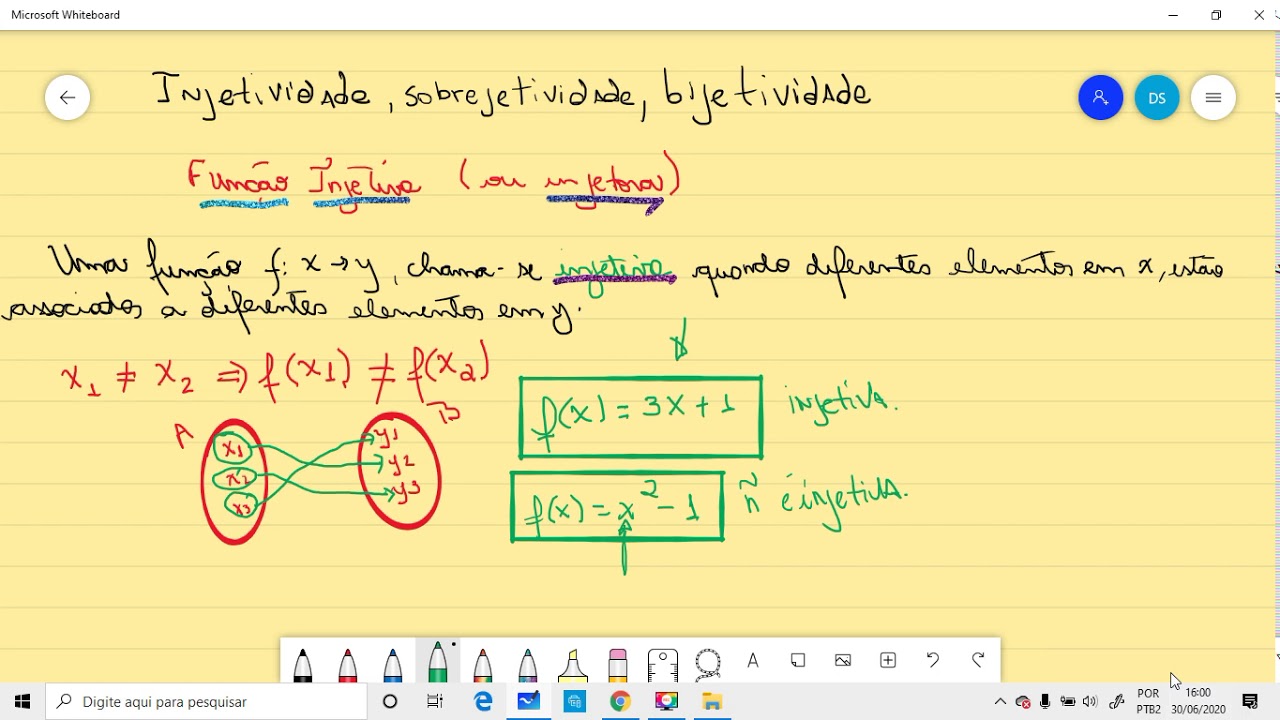 Microsoft Whiteboard
Injetividade, sobrejetividade, bijetividade
DS
Função Injetiva (ou injetora)
Uma função f: x → y, chama-se injetiva quando diferentes elementos em x, estão
associados a diferentes elementos em y.
x1 ≠ x2 ⇒ f(x1) ≠ f(x2)
f(x) = 3x + 1 injetiva.
A B
x1 y1
x2 y2
x3 y3
f(x) = x² - 1 ñ é injetiva.
A
Digite aqui para pesquisar
POR 16:00
PTB2 30/06/2020